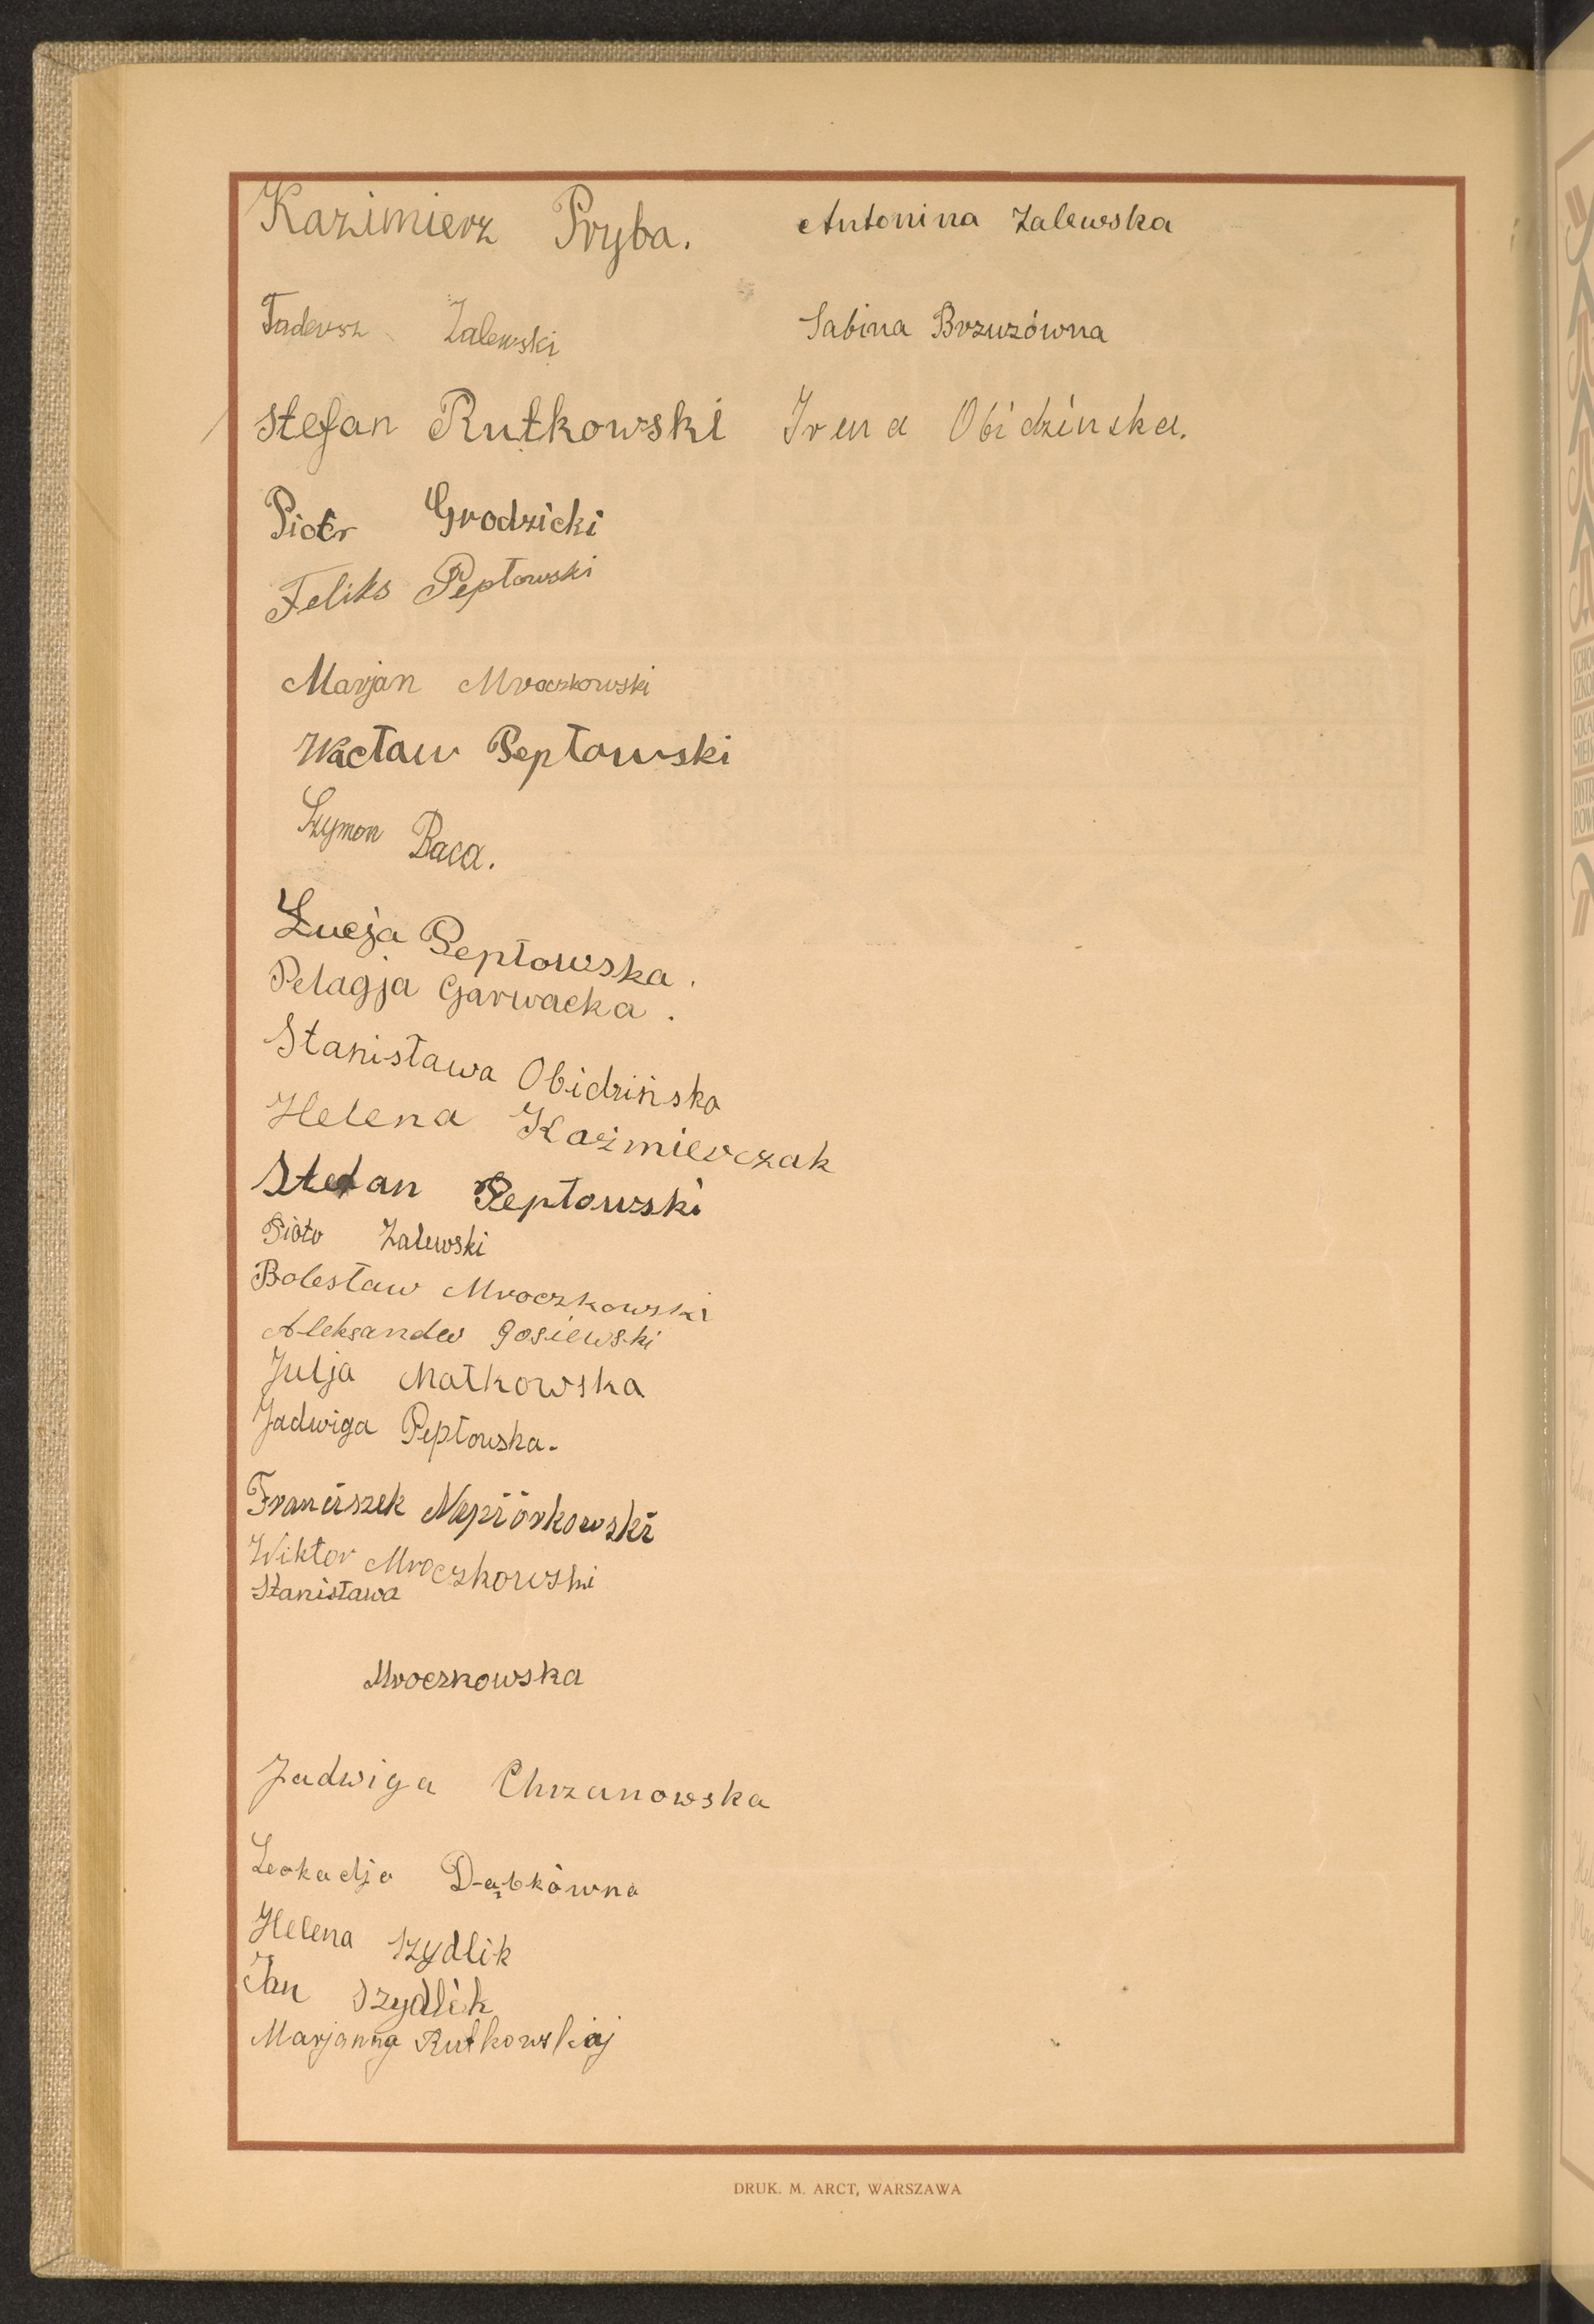 Kazimierz Pryba.
Antonina Zalewska
Tadeusz Zalewski
Sabina Brzuzówna
Stefan Rutkowski
Irena Obidzinska.
Piotr Grodzicki
Feliks Peptowski
Marjan Mroczkowski
Wacław Pepławski
Szymon Baca.
Łucja Pepłowska.
Pelagja Garwacka.
Stanisława Obidzińska
Helena Kaźmierczak
Stefan Pepłowski
Piotr Zalewski
Bolesław Mroczkowski
Aleksander Gosiewski
Julja Małkowska
Jadwiga Pepłowska.
Franciszek Napiórkowski
Wiktor Mroczkowski
Stanisława
Mroczkowska
Jadwiga Chrzanowska
Leokadja Dąbkówna
Helena Szydlik
Jan Szydlik
Marjanna Rutkowskiej
DRUK. M. ARCT, WARSZAWA